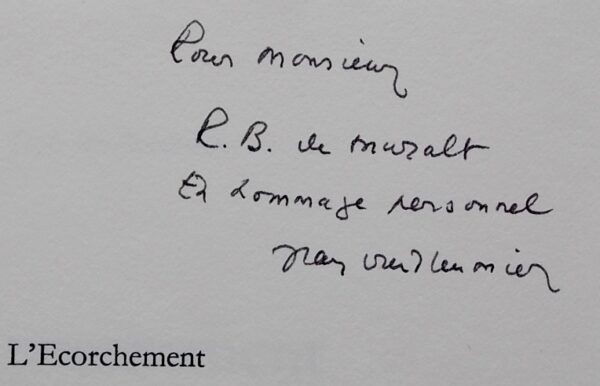 Pour monsieur
R. B. de Muralt
En hommage personnel
Jean Vuilleumier
L'Ecorchement